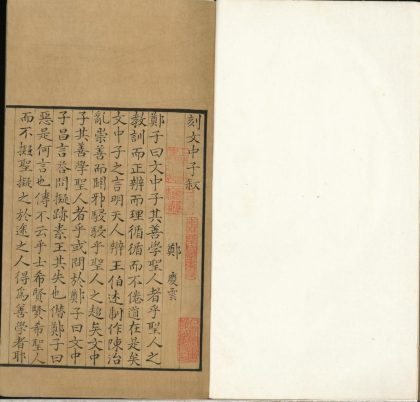 刻文中子敍
鄭慶雲
鄭子曰文中子其善學聖人者乎聖人之
教訓而正辨而理循循而不倦道在是矣
文中子之言明天人辨王伯述制作陳治
亂崇善而闢邪駸駸乎聖人之趨矣文中
子其善學聖人者乎或問於鄭子曰文中
子昌言答問擬跡素王其失也僭鄭子曰
惡是何言也傳不云乎士希賢賢希聖人
而不擬聖擬之於途之人得為善學者耶